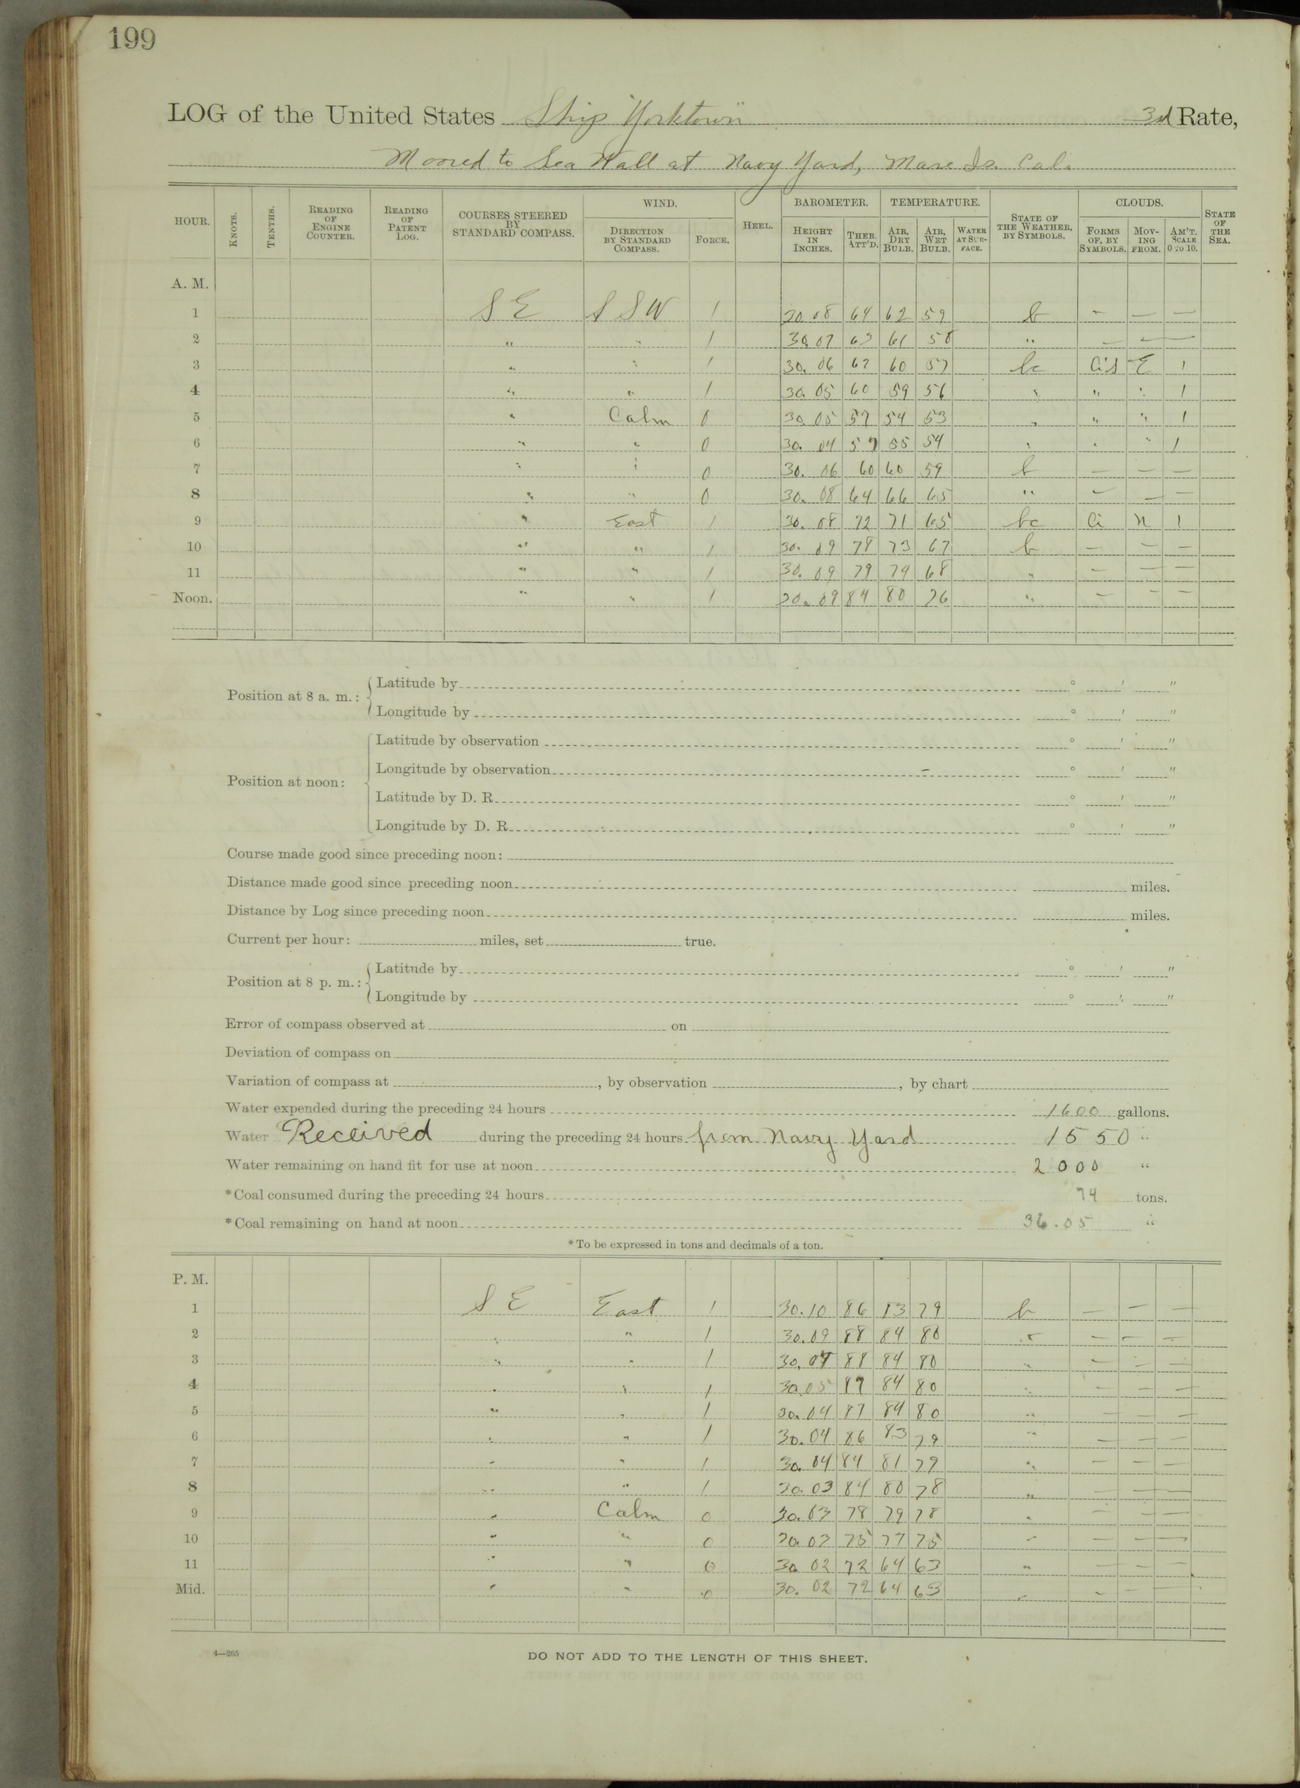 199
LOG of the United States Ship "Yorktown" 3d Rate,
Moored to Sea Wall at Navy Yard, Mare Is. Cal.
HOUR. KNOTS. TENTHS. READING OF ENGINE COUNTER. READING OF PATENT LOG. COURSES STEERED BY STANDARD COMPASS. WIND. DIRECTION BY STANDARD COMPASS. FORCE. HEEL. BAROMETER. HEIGHT IN INCHES. THER. ATT'D. TEMPERATURE. AIR, DRY BULB. AIR, WET BULB. WATER AT SURFACE. STATE OF THE WEATHER, BY SYMBOLS. CLOUDS. FORMS OF, BY SYMBOLS. MOVING FROM. AM'T. SCALE 0 TO 10. STATE OF THE SEA.
A. M.
1 S E S S W 1 30.08 64 62 59 b — — —
2 " " 1 30.07 63 61 58 " — —
3 " " 1 30.06 62 60 57 bc Ci.S E 1
4 " " 1 30.05 60 59 56 " " " 1
5 " Calm 0 30.05 57 54 53 " " " 1
6 " " 0 30.04 57 55 54 " " " 1
7 " " 0 30.06 60 60 59 b — — —
8 " " 0 30.08 64 66 65 " — — —
9 " East 1 30.08 72 71 65 bc Ci N 1
10 " " 1 30.09 78 73 67 b — — —
11 " " 1 30.09 79 74 68 " — — —
Noon. " " 1 30.09 84 80 76 " — — —
Position at 8 a. m.: Latitude by ° ' "
Longitude by ° ' "
Position at noon: Latitude by observation ° ' "
Longitude by observation ° ' "
Latitude by D. R. ° ' "
Longitude by D. R. ° ' "
Course made good since preceding noon:
Distance made good since preceding noon miles.
Distance by Log since preceding noon miles.
Current per hour: miles, set true.
Position at 8 p. m.: Latitude by ° ' "
Longitude by ° ' "
Error of compass observed at on
Deviation of compass on
Variation of compass at , by observation , by chart
Water expended during the preceding 24 hours 1600 gallons.
Water Received during the preceding 24 hours from Navy Yard 1550 "
Water remaining on hand fit for use at noon 2000 "
*Coal consumed during the preceding 24 hours tons.
*Coal remaining on hand at noon 36.05 "
*To be expressed in tons and decimals of a ton.
P. M.
1 S E East 1 30.10 86 83 79 b — — —
2 " " 1 30.09 88 84 80 " — — —
3 " " 1 30.07 88 84 80 " — — —
4 " " 1 30.05 87 84 80 " — — —
5 " " 1 30.04 87 84 80 " — — —
6 " " 1 30.04 86 83 79 " — — —
7 " " 1 30.04 84 81 79 " — — —
8 " " 1 30.03 84 80 78 " — — —
9 " Calm 0 30.03 78 79 78 " — — —
10 " " 0 30.02 75 77 75 " — — —
11 " " 0 30.02 72 64 63 " — — —
Mid. " " 0 30.02 72 64 63 " — — —
4—265
DO NOT ADD TO THE LENGTH OF THIS SHEET.